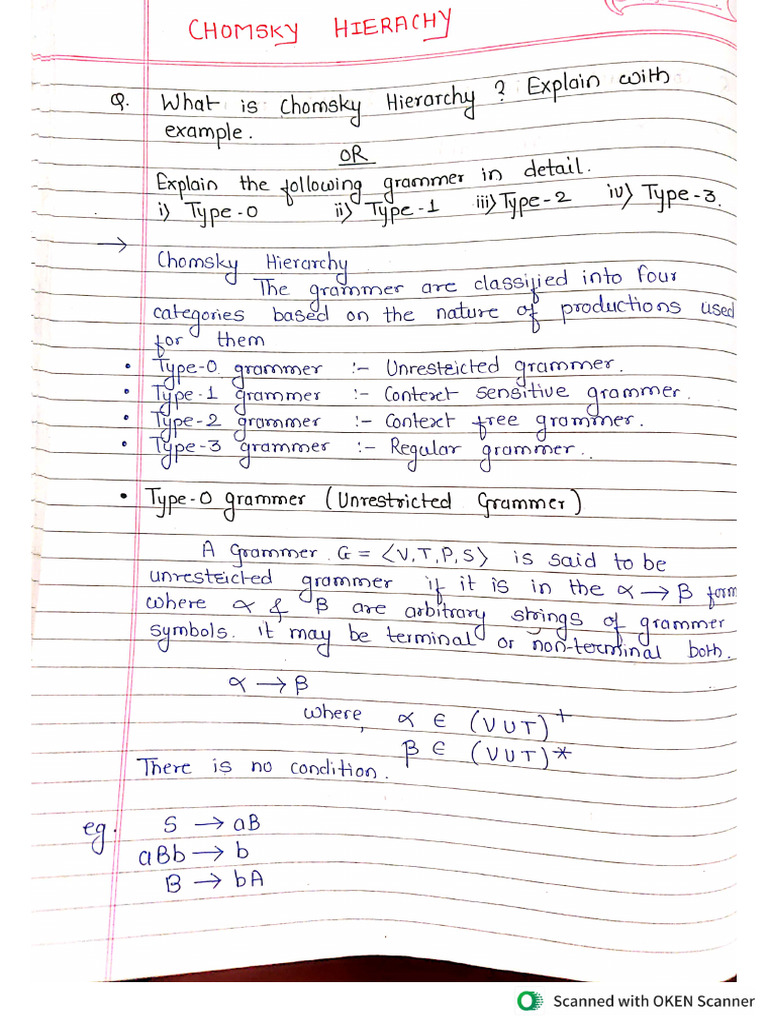 CHOMSKY HIERACHY
Q. What is Chomsky Hierarchy ? Explain with
example.
OR
Explain the following grammer in detail.
i) Type-0 ii) Type-1 iii) Type-2 iv) Type-3.
→ Chomsky Hierarchy
The grammer are classified into four
categories based on the nature of productions used
for them
• Type-0 grammer :- Unrestricted grammer.
• Type-1 grammer :- Context sensitive grammer.
• Type-2 grammer :- Context free grammer.
• Type-3 grammer :- Regular grammer..
• Type-0 grammer (Unrestricted Grammer)
A Grammer G = ⟨V,T,P,S⟩ is said to be
unrestricted grammer if it is in the α → β form
where α & β are arbitrary strings of grammer
symbols. it may be terminal or non-terminal both.
α → β
where, α ∈ (V∪T)⁺
β ∈ (V∪T)*
There is no condition.
eg. S → aB
aBb → b
B → bA
Scanned with OKEN Scanner